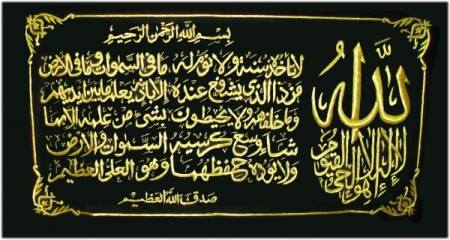 بسم الله الرحمن الرحيم
الله
لا إله إلا هو الحي القيوم
لا تأخذه سنة ولا نوم له ما في السموات وما في الأرض
من ذا الذي يشفع عنده إلا بإذنه يعلم ما بين أيديهم
وما خلفهم ولا يحيطون بشيء من علمه إلا بما
شاء وسع كرسيه السموات والأرض
ولا يؤده حفظهما وهو العلي العظيم
صدق الله العظيم